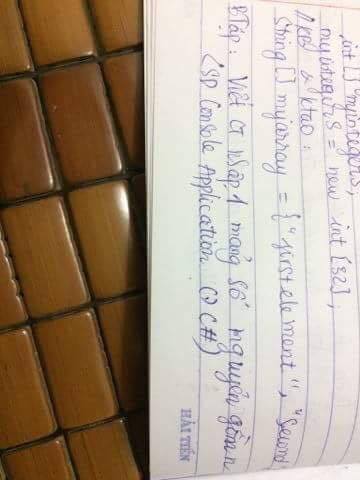 int [] myintegers;
myintegers = new int [32];
Kbáo & ktạo:
String [] myarray = {"first element", "Second
BTập: Viết ct nhập 1 mảng số nguyên gồm n
(SD Console Application C#)
HẢI TIẾN